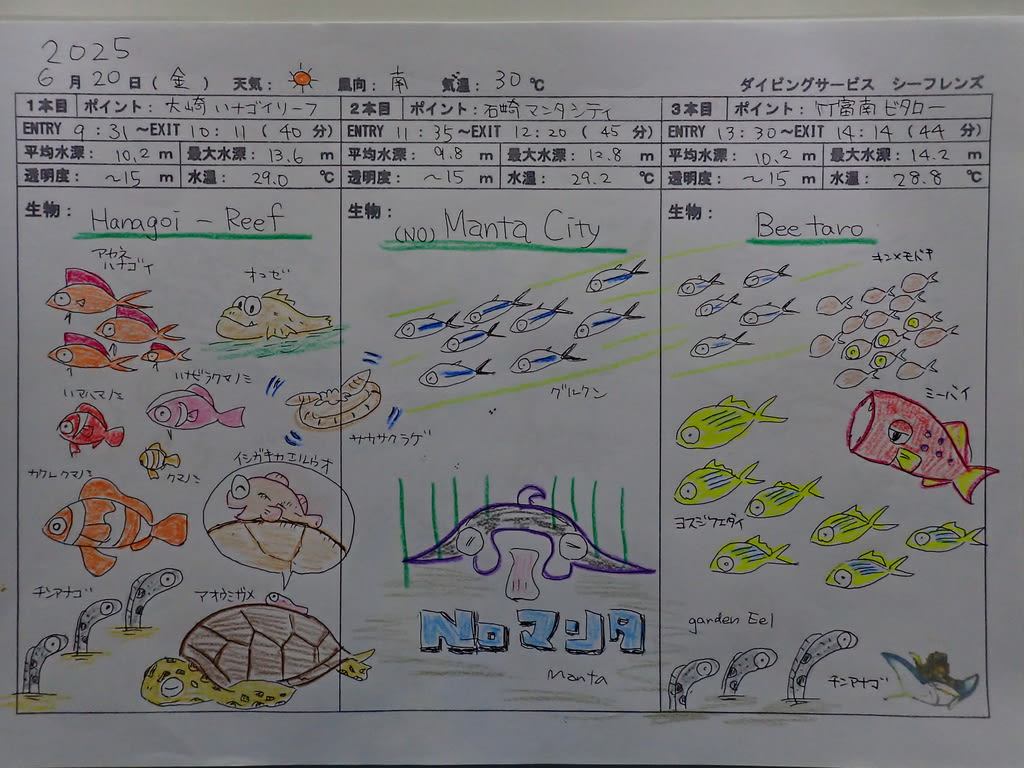 2025
6月20日(金) 天気: 風向: 南 気温: 30℃ ダイビングサービス シーフレンズ
1本目 ポイント: 大崎 ハナゴイリーフ
ENTRY 9:31~EXIT 10:11(40分)
平均水深: 10.2 m 最大水深: 13.6 m
透明度: ~15 m 水温: 29.0 ℃
生物: Hanagoi - Reef
アカネ
ハナゴイ
オコゼ
ハマクマノミ
ハナビラクマノミ
カクレクマノミ
クマノミ
イシガキカエルウオ
チンアナゴ
アオウミガメ
2本目 ポイント: 石崎 マンタシティ
ENTRY 11:35~EXIT 12:20(45分)
平均水深: 9.8 m 最大水深: 12.8 m
透明度: ~15 m 水温: 29.2 ℃
生物: (NO) Manta City
グルクン
サカサクラゲ
No マンタ
Manta
3本目 ポイント: 竹富南 ビタロー
ENTRY 13:30~EXIT 14:14(44分)
平均水深: 10.2 m 最大水深: 14.2 m
透明度: ~15 m 水温: 28.8 ℃
生物: Bee taro
キンメモドキ
ミーバイ
ヨスジフエダイ
garden Eel
チンアナゴ